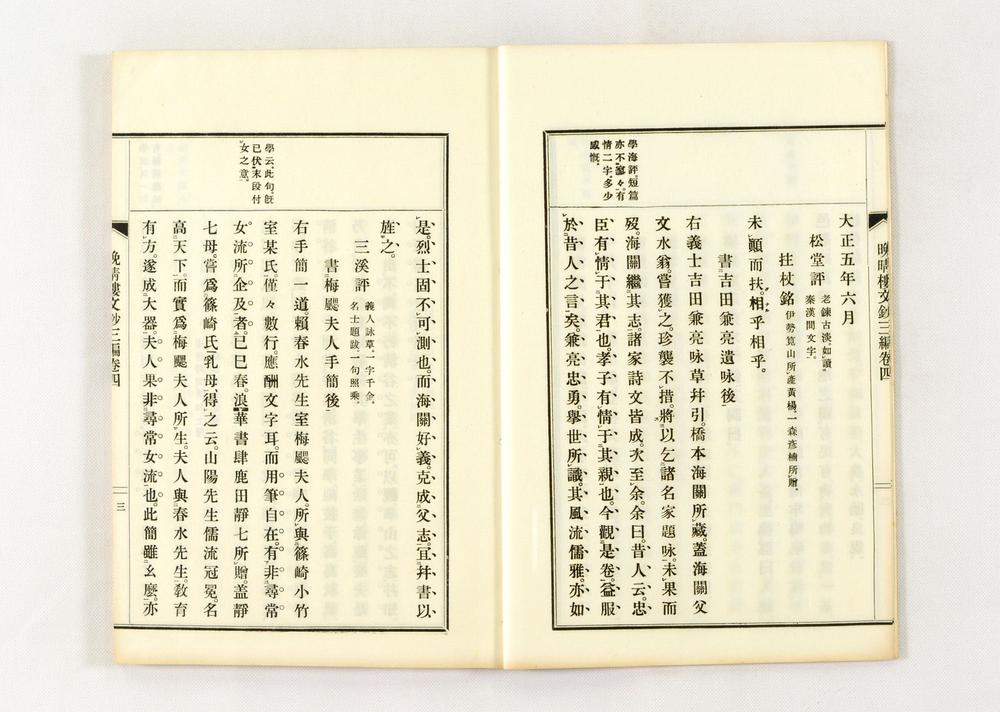 晩晴樓文鈔三編卷四
大正五年六月
松堂評 老鍊古淡。如讀
秦漢間文字。
拄杖銘 伊勢筧山所產黃楊。一森彥楠所贈。
未顚而扶。相乎相乎。
書吉田兼亮遺咏後
右義士吉田兼亮咏草幷引。橋本海關所藏。蓋海關父
文水翁。嘗獲之。珍襲不措。將以乞諸名家題咏。未果而
歿。海關繼其志。諸家詩文皆成。次至余。余曰。昔人云。忠
臣有情于其君也。孝子有情于其親也。今觀是卷。益服
於昔人之言矣。兼亮忠勇。擧世所識。其風流儒雅。亦如
學海評。短篇
亦不寥々。有
情二字。多少
感慨。
是。烈士固不可測也。而海關好義。克成父志。宜幷書以
旌之。
三溪評 義人咏草。一字千金。
名士題跋。一句照乘。
書梅颸夫人手簡後
右手簡一道。賴春水先生室梅颸夫人。所與篠崎小竹
室某氏。僅々數行。應酬文字耳。而用筆自在。有非尋常
女流所企及者。己巳春。浪華書肆鹿田靜七所贈。蓋靜
七母。嘗爲篠崎氏乳母。得之云。山陽先生儒流冠冕。名
高天下。而實爲梅颸夫人所生。夫人與春水先生。敎育
有方。遂成大器。夫人果非尋常女流也。此簡雖幺麽。亦
學云。此句。旣
已伏末段付
女之意。
晩晴樓文鈔三編卷四
三